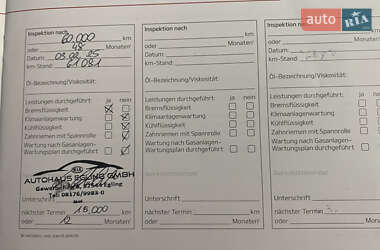 auto RIA
Inspektion nach
60.000 km
oder 48 Monaten!
Datum: 03.02.25
km-Stand: 61.081
Öl-Bezeichnung/Viskosität:
Leistungen durchgeführt: ja nein
Bremsflüssigkeit
Klimaanlagenwartung
Kühlflüssigkeit
Zahnriemen mit Spannrolle
Wartung nach Gasanlagen-
Wartungsplan durchgeführt
KIA
AUTOHAUS EGLING GMBH
Egling
Tel: 08176/9983-0
Unterschrift
nächster Termin 15.000 km
oder 12 Monaten!
Inspektion nach
km
oder Monaten!
Datum:
km-Stand:
Öl-Bezeichnung/Viskosität:
Leistungen durchgeführt: ja nein
Bremsflüssigkeit
Klimaanlagenwartung
Kühlflüssigkeit
Zahnriemen mit Spannrolle
Wartung nach Gasanlagen-
Wartungsplan durchgeführt
Unterschrift
nächster Termin km
oder Monaten!
Inspektion nach
oder
Datum:
km-Stand:
Öl-Bezeichnung/Viskosität:
Leistungen durchgeführt:
Bremsflüssigkeit
Klimaanlagenwartung
Kühlflüssigkeit
Zahnriemen mit Spannrolle
Wartung nach Gasanlagen-
Wartungsplan durchgeführt
Unterschrift
nächster Termin
oder